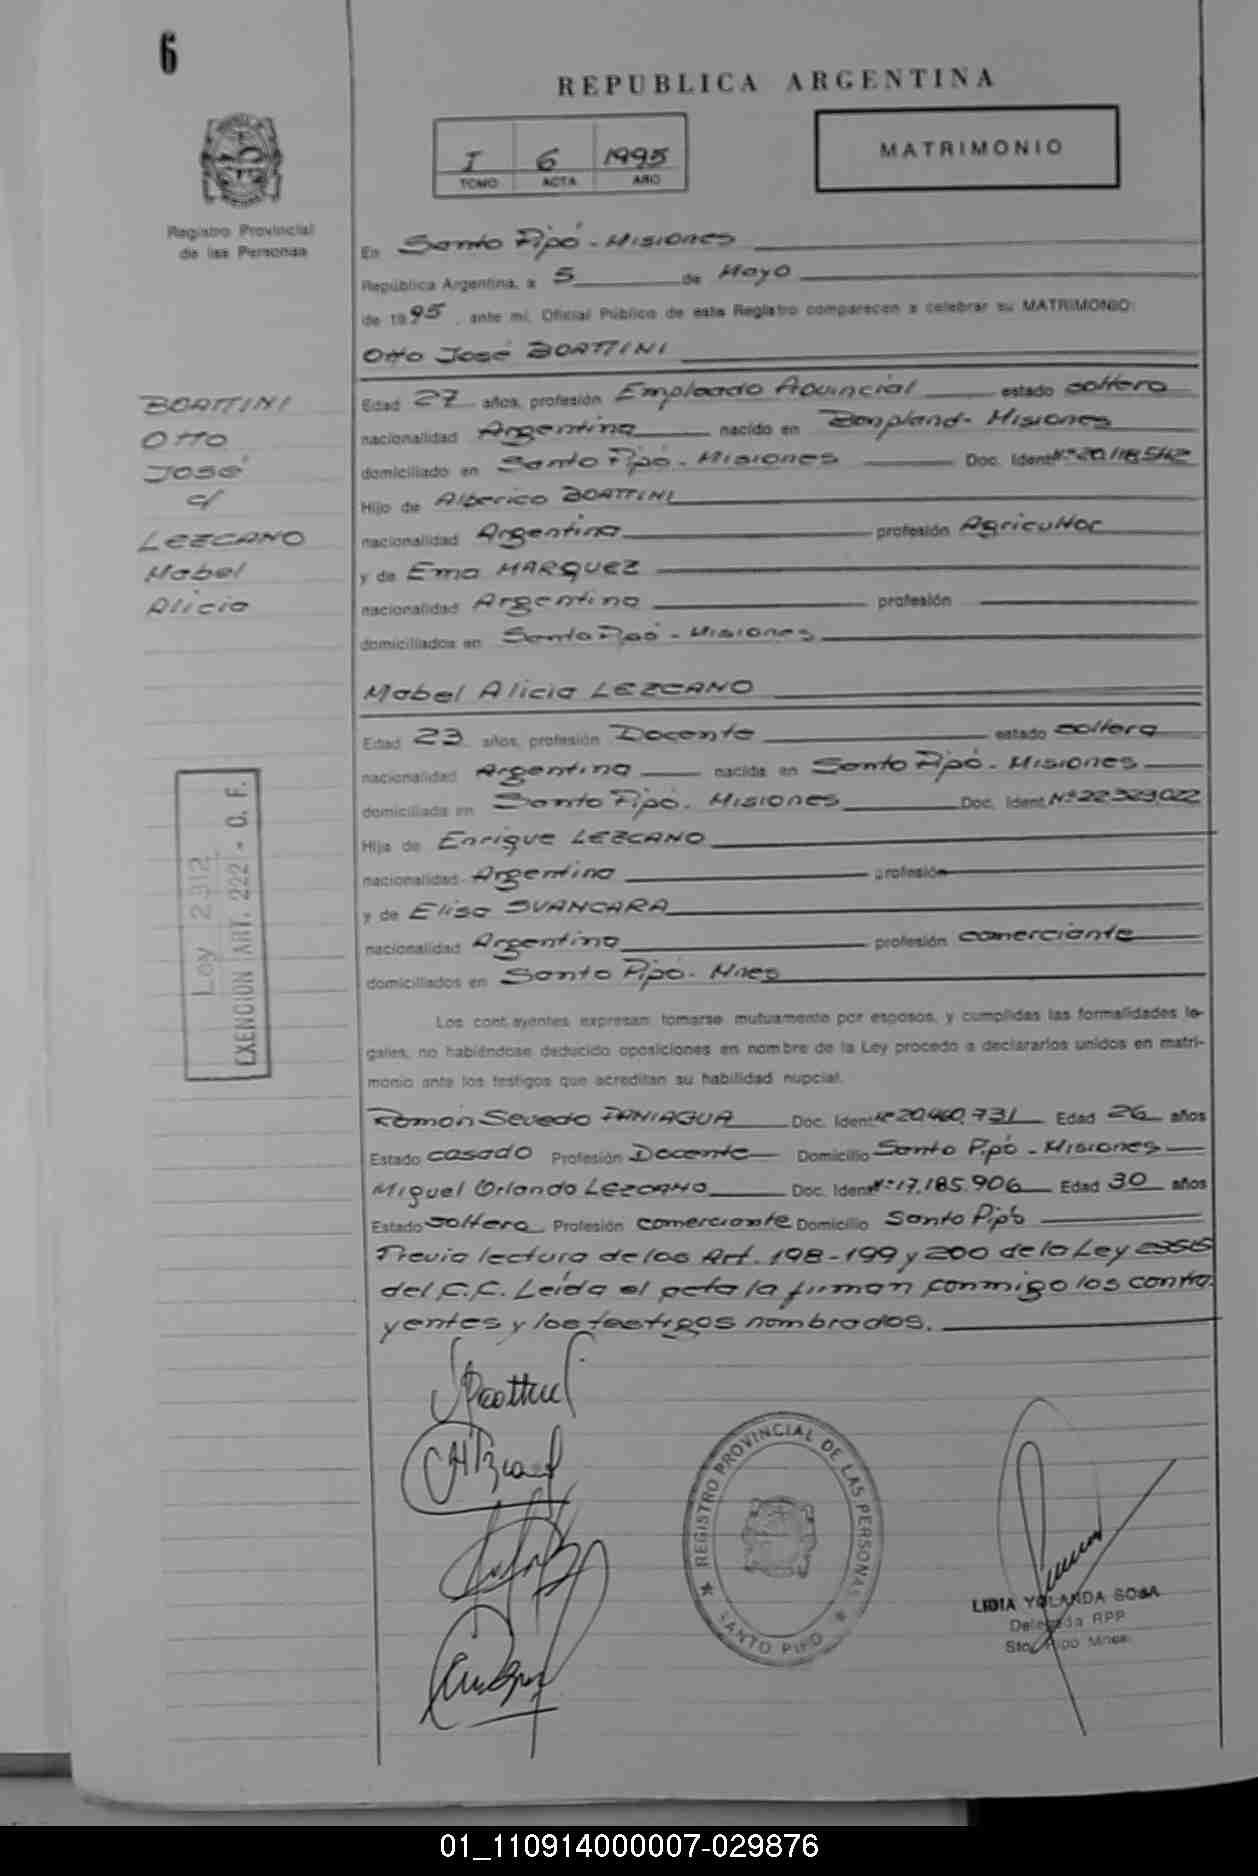 6
REPUBLICA ARGENTINA
I 6 1995
TOMO ACTA AÑO
MATRIMONIO
Registro Provincial
de las Personas
En Santo Pipó - Misiones
República Argentina, a 5 de Mayo
de 1995, ante mí, Oficial Público de este Registro comparecen a celebrar su MATRIMONIO:
Otto José BOATTINI
BOATTINI
OTTO
JOSÉ
c/
LEZCANO
Mabel
Alicia
Edad 27 años, profesión Empleado Provincial estado soltero
nacionalidad Argentina nacido en Bonpland - Misiones
domiciliado en Santo Pipó - Misiones Doc. Ident. Nº 20.118.542
Hijo de Alberico BOATTINI
nacionalidad Argentina profesión Agricultor
y de Ema MARQUEZ
nacionalidad Argentina profesión
domiciliados en Santo Pipó - Misiones
Mabel Alicia LEZCANO
Edad 23 años, profesión Docente estado soltera
nacionalidad Argentina nacida en Santo Pipó - Misiones
domiciliada en Santo Pipó - Misiones Doc. Ident. Nº 22.323.022
Hija de Enrique LEZCANO
nacionalidad Argentina profesión
y de Elisa SVANCARA
nacionalidad Argentina profesión comerciante
domiciliados en Santo Pipó - Mnes
Ley 2312
EXENCION ART. 222 - O. F.
Los contrayentes expresan tomarse mutuamente por esposos, y cumplidas las formalidades le-
gales, no habiéndose deducido oposiciones en nombre de la Ley procedo a declararlos unidos en matri-
monio ante los testigos que acreditan su habilidad nupcial.
Ramón Sevedo PANIAGUA Doc. Ident. Nº 20.460.731 Edad 26 años
Estado casado Profesión Docente Domicilio Santo Pipó - Misiones
Miguel Orlando LEZCANO Doc. Ident. Nº 17.185.906 Edad 30 años
Estado soltero Profesión comerciante Domicilio Santo Pipó
Previa lectura de los Art. 198-199 y 200 de la Ley 23515
del C.C. Leída el acta la firman conmigo los contra-
yentes y los testigos nombrados.
REGISTRO PROVINCIAL DE LAS PERSONAS
SANTO PIPO
LIDIA YOLANDA SOSA
Delegada RPP
Sto. Pipó Mnes.
01_110914000007-029876